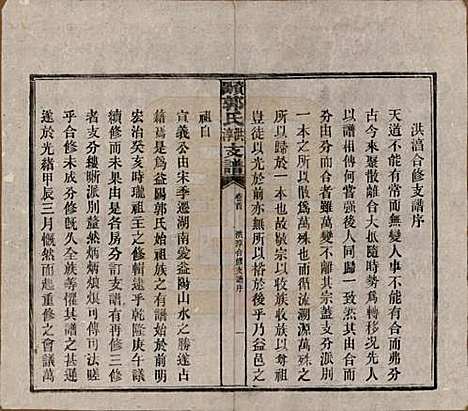 洪淯合修支譜序
天道不能有常而無變人事不能有合而弗分
古今以來聚散離合大抵隨時勢爲轉移況先人
以譜相傳何嘗強後人同歸一致第觀之本支
分由分而合者雖萬變不失其宗蓋支分派別
一本之所以散爲萬殊也合而修之循流溯源萬殊之
所以歸於一本也故敬宗以收族收族以尊祖
豈徒以光於前亦無所以裕於後乎乃益邑
續郭氏洪淯支譜
卷首
洪淯合修支譜序
一
祖自
宣義公由宋季遷湖南愛益陽山水之勝遂占
籍焉爲益陽郭氏始祖族之有譜始於前明
宏治癸亥時瓏祖主之修輯逮乎乾隆庚午議
續修而未果由是各房分訂支譜有再修三修
支分縷斷派別炳炳烺烺可傳可法嗟
乎合修未修旣久全族等懼其譜之甚遠
遂於光緒甲辰三月慨然而起重修之會議萬